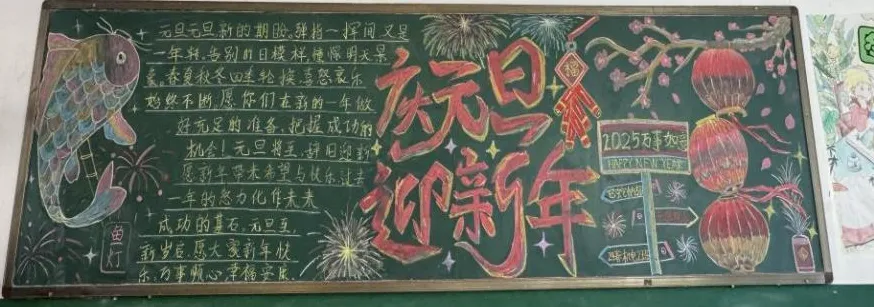 元旦元旦新的期盼。弹指一挥间又是
一年转,告别昨日模样憧憬明天景
意。春夏秋冬四季轮换喜怒哀乐
始终不断,愿你们在新的一年做
好充足的准备,把握成功的
机会!元旦将至,辞旧迎新
愿新年带来希望与快乐,过去
一年的努力化作未来
成功的基石。元旦至,
新岁启,愿大家新年快
乐,万事顺心,幸福安康
鱼灯
庆元旦
迎新年
福
2025万事如意
HAPPY NEW YEAR